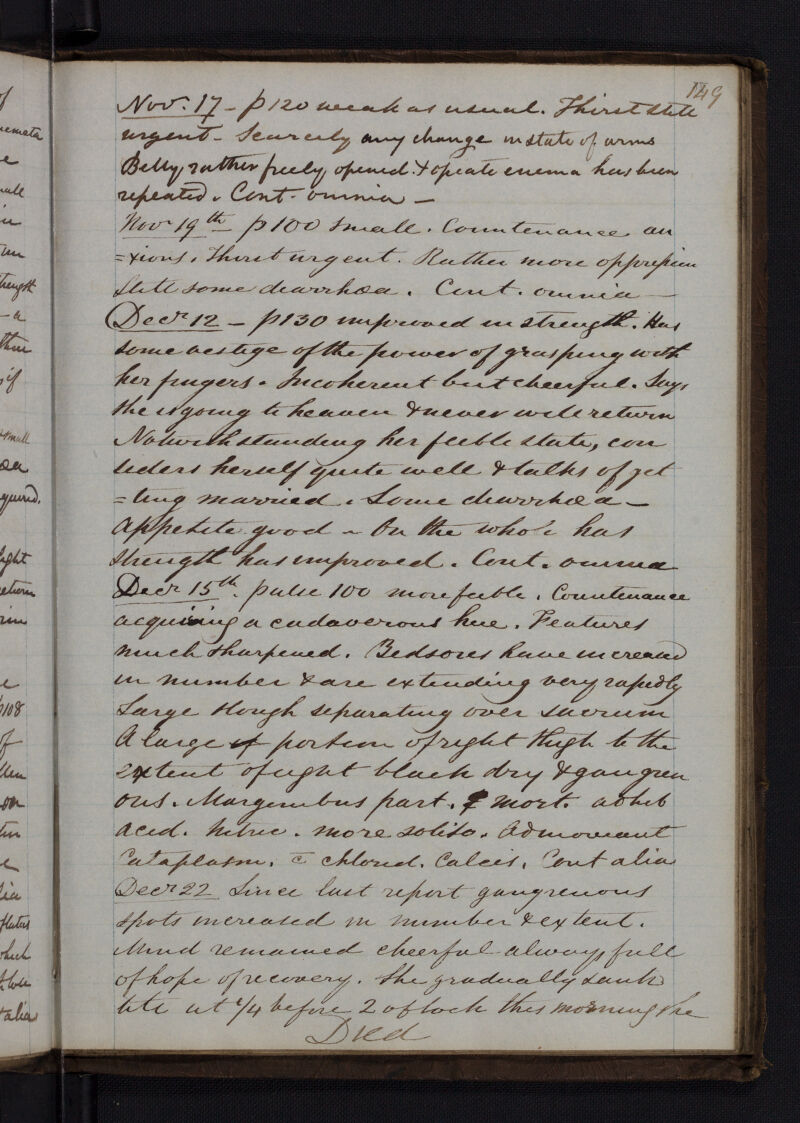 149
Novr. 17 - p 120 weak as usual. Thirst still
urgent - Scarcely any change in state of arms
Belly rather freely opened & opiate enema has been
repeated. Cont. omnia -
Novr 19th p 100 small. Countenance an
=xious. Thirst urgent. Rather more oppression
Still some diarrhœa. Cont. omnia -
Decr 12 - p 130 improved in strength. Has
some vestige of the power of grasping with
her fingers. Incoherent but cheerful. Says
she is going to heaven & never will return
Notwithstanding her feeble state, con
siders herself quite well & talks of get
=ting married. Some diarrhœa -
Appetite good - On the whole has
strength has improved. Cont. omnia
Decr 15th. pulse 100 more feeble. Countenance
acquiring a cadaverous hue. Features
much sharpened. Bedsores have increased
in number & are extending very rapidly
Large slough separating over sacrum
A large portion of right thigh to the
extent of eight black dry & gangren
ous. Marginibus part. mort. adhib
acid. nitric. more solito. Admoveant
Cataplasm. c̄ chlorid. Calcis. Cont alia
Decr 22 Since last report gangrenous
spots increased in number & extent.
Mind remained cheerful always full
of hope of recovery. She gradually sank
till at 1/4 before 2 o'clock this morning she
Died